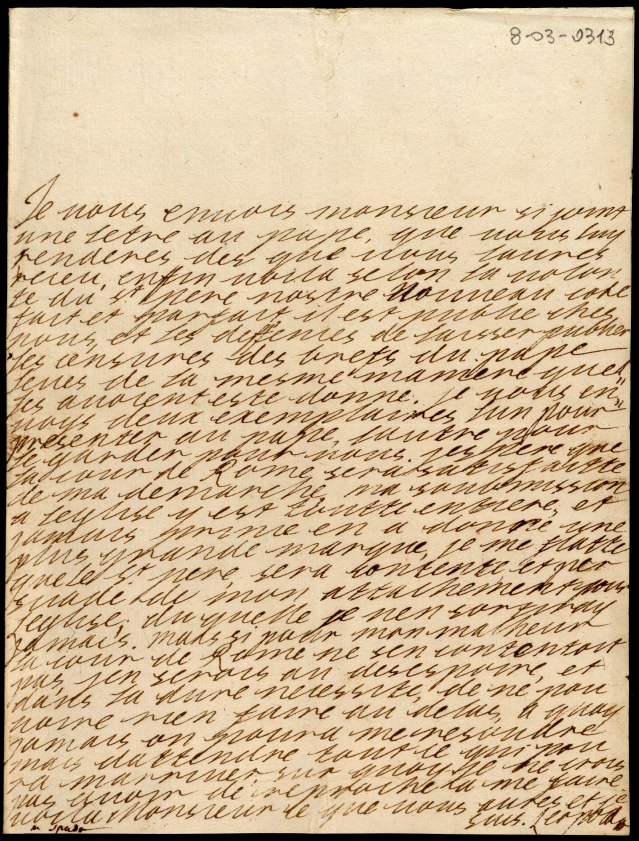 8-03-0313
Je vous envois monsieur si joint
une letre au pape, que vous luy
renderes des que vous laures
receu, enfin voila selon la volon
te du st pere nostre nouveau code
fait et parfait il est publie ches
nous et les deffences de laisser publier
les censures des brefs du pape
leues de la mesme maniere quel
les avoient este donne. je vous en
vois deux exemplaires lun pour
presenter au pape, lautre pour
le garder pour vous. jespere que
la cour de Rome sera satisfaitte
de ma demarche, ma soubmission
a leglise y est toutte entiere, et
jamais prince en a donné une
plus grande marque, je me flatte
que le st pere, sera contente et per
suade de mon attachement pour
leglise, du quelle je nen sortiray
jamais. mais si pour mon malheur
la cour de Rome ne sen contentoit
pas, jen serois au desespoire, et
dans la dure necessité, de ne pou
voire rien faire au dela, a quoy
jamais on poura me resoudre
mais dattendre tout ce qui pou
ra marriver sur quoy je ne crois
pas avoir de reproche a me faire
voila Monsieur ce que vous aures et je
suis. Leopold
m spada